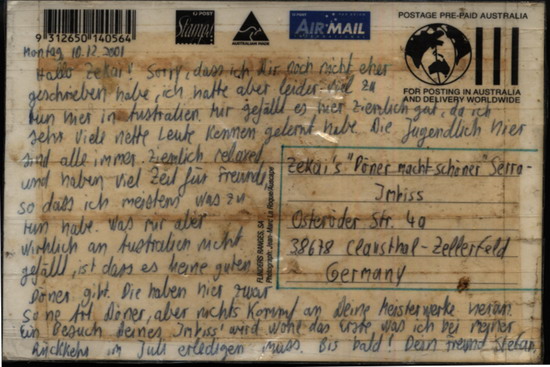 9 312650 140564
AU POST
Stamps
AUSTRALIAN MADE
PAR AVION
AIR MAIL
POSTAGE PRE-PAID AUSTRALIA
FOR POSTING IN AUSTRALIA
AND DELIVERY WORLDWIDE
Montag 10.12.2001
Hallo Zekai! Sorry, dass ich Dir noch nicht eher
geschrieben habe, ich hatte aber leider viel zu
tun hier in Australien. Mir gefällt es hier ziemlich gut, da ich
sehr viele nette Leute kennen gelernt habe. Die Jugendlich hier
sind alle immer ziemlich relaxed
und haben viel Zeit für Freunde,
so dass ich meistens was zu
tun habe. Was mir aber
wirklich an Australien nicht
gefällt, ist dass es keine guten
Döner gibt. Die haben hier zwar
so ne Art Döner, aber nichts kommt an Deine Meisterwerke heran.
Ein Besuch Deines Imbiss' wird wohl das Erste, was ich bei meiner
Rückkehr im Juli erledigen muss. Bis bald! Dein Freund Stefan
FLINDERS RANGES, SA
Photograph: Jean-Marc La Roque/Auscape
Zekai's "Döner macht schöner" Serra-
Imbiss
Osteröder Str. 4a
38678 Clausthal-Zellerfeld
Germany